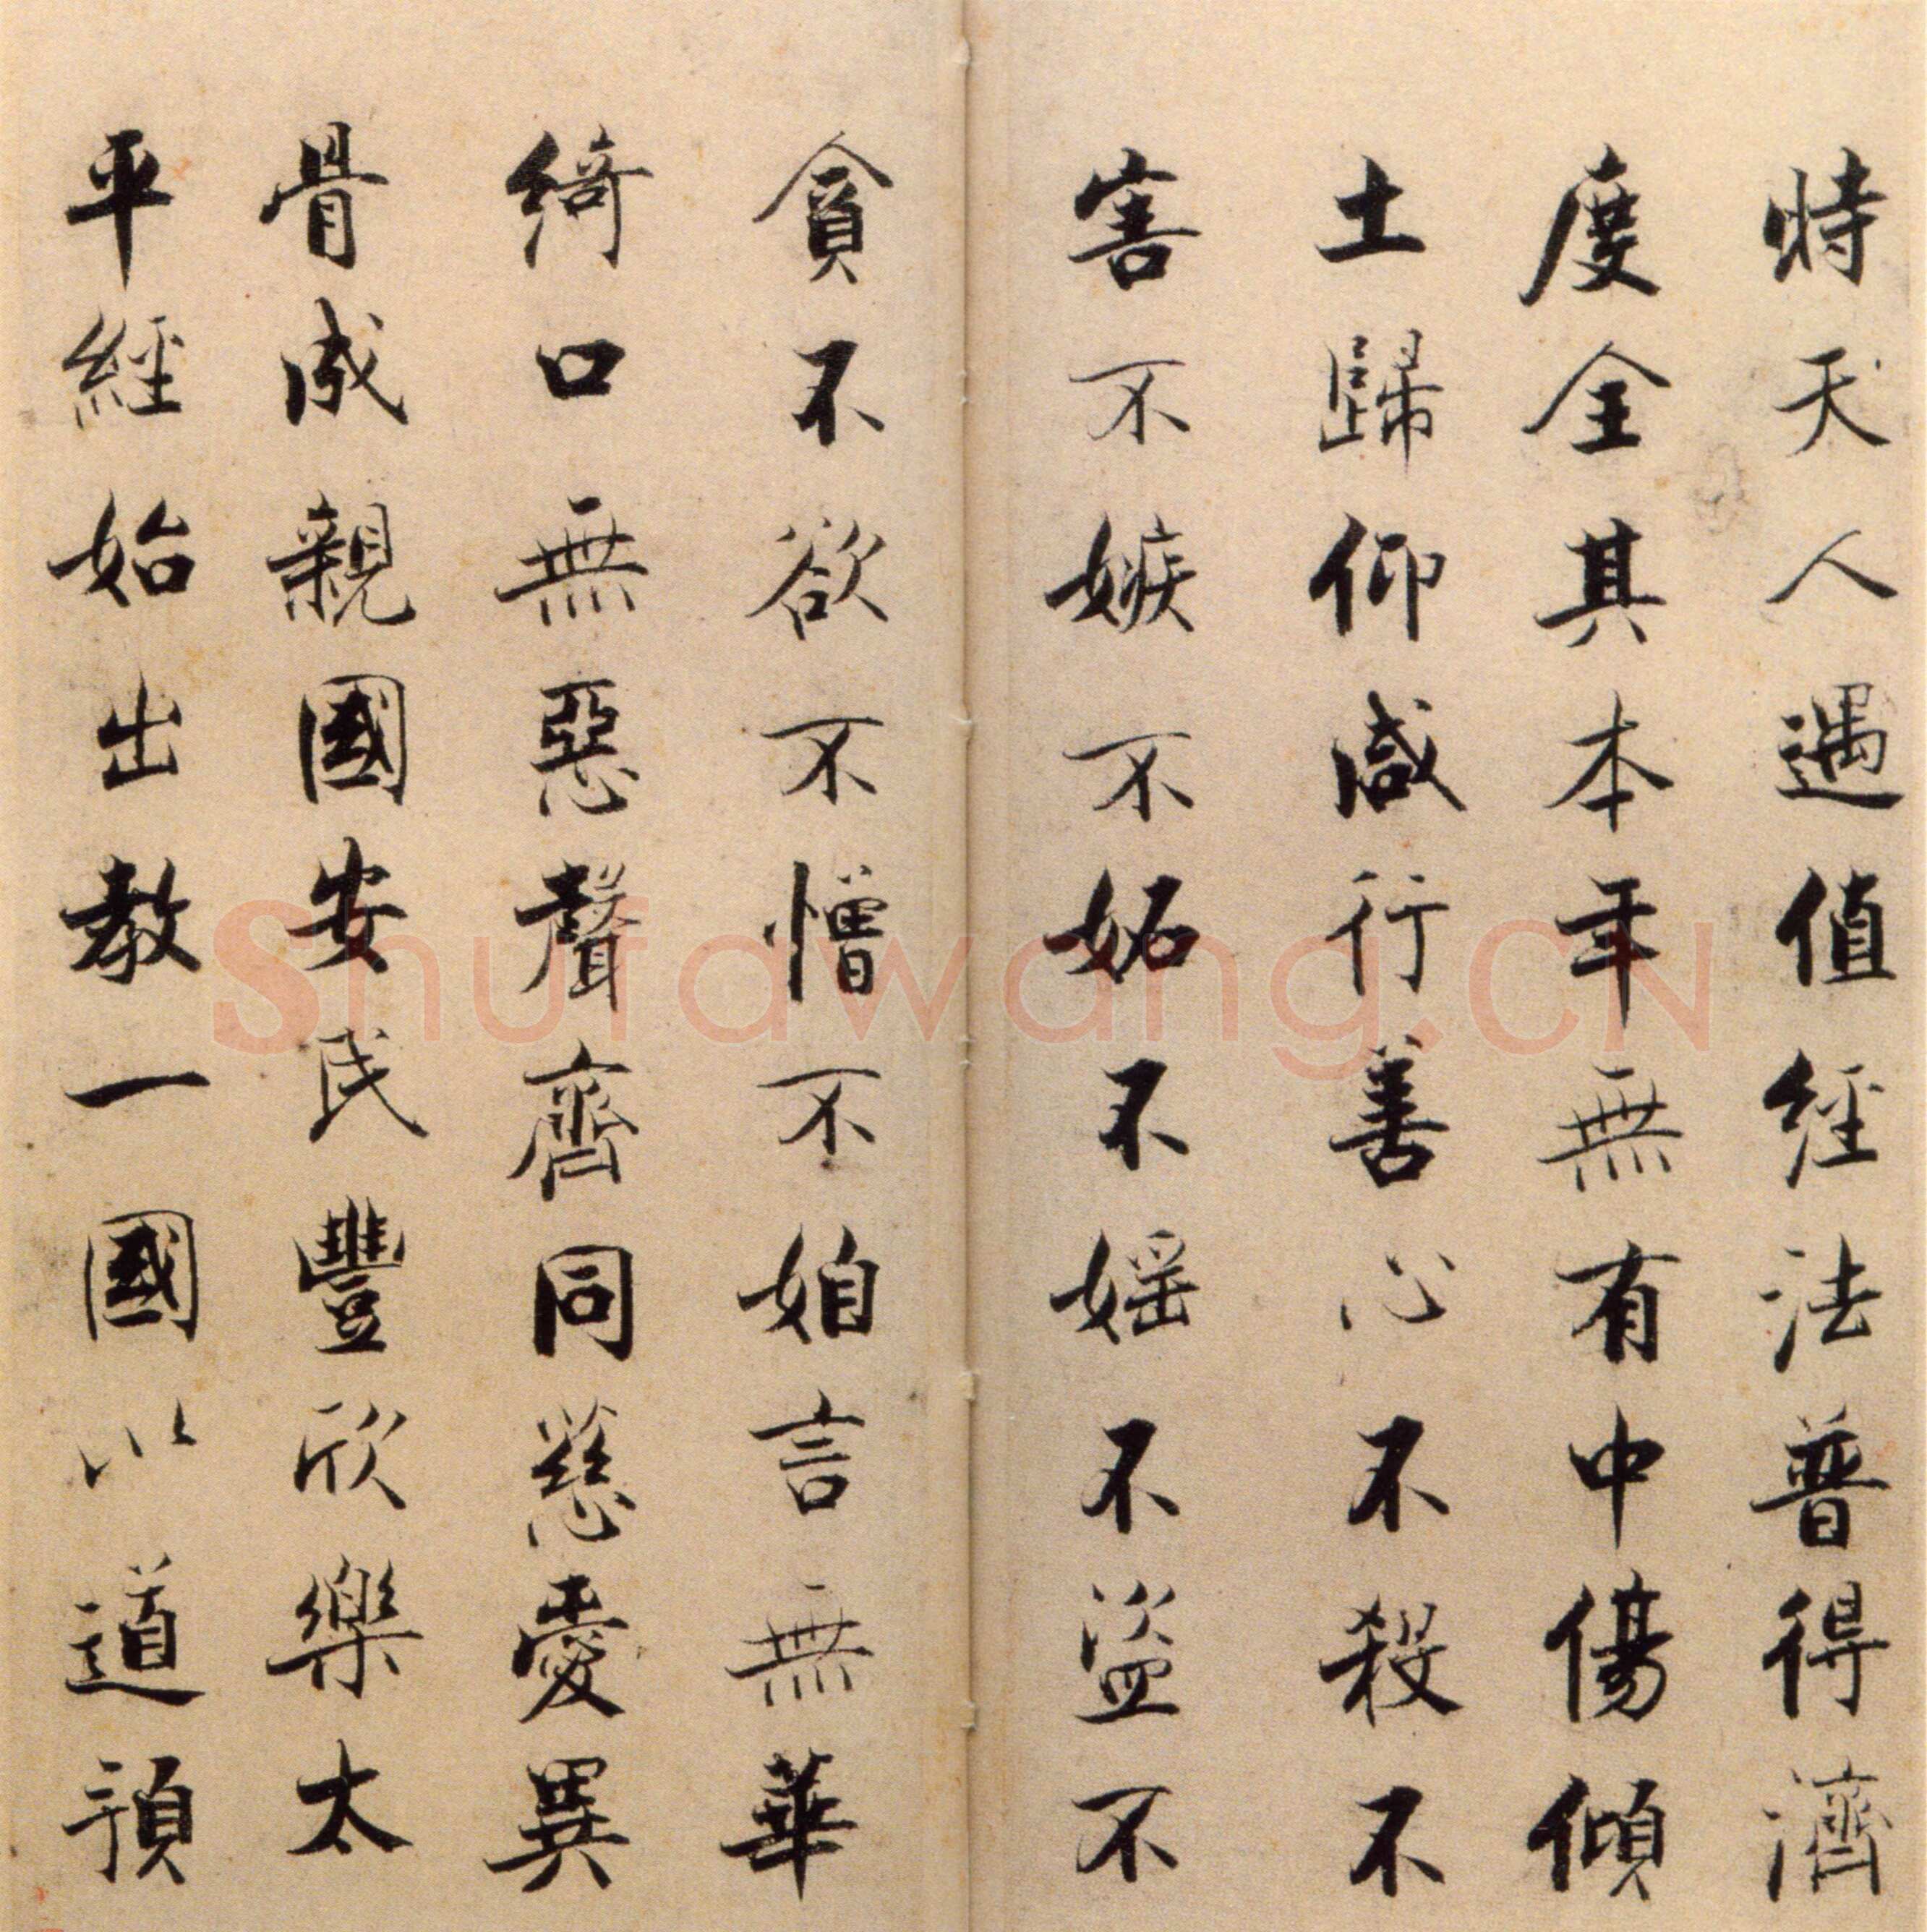 時天人遇值經法普得濟
度全其本年無有中傷傾
土歸仰咸行善心不殺不
害不嫉不妬不婬不盜不
貪不欲不憎不妒言無華
綺口無惡聲齊同慈愛異
骨成親國安民豐欣樂太
平經始出教一國以道預
Shufawang.CN